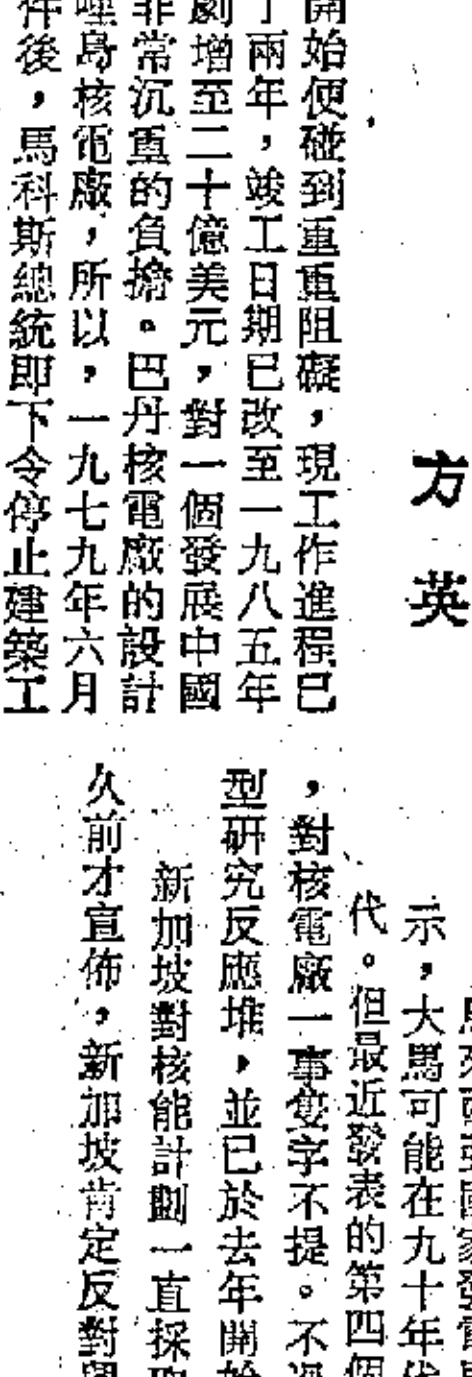 開始便碰到重重阻礙，現工作進程已
了兩年，竣工日期已改至一九八五年
劇增至二十億美元，對一個發展中國
非常沉重的負擔。巴丹核電廠的設計
哩島核電廠，所以，一九七九年六月
件後，馬科斯總統即下令停止建築工
方英
示，大馬可能在九十年代
代。但最近發表的第四個
，對核電廠一事隻字不提。不過
型研究反應堆，並已於去年開始
新加坡對核能計劃一直採取
久前才宣佈，新加坡肯定反對與